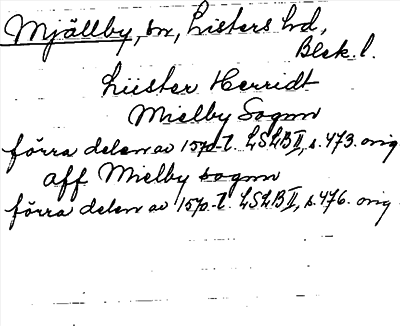 Mjällby, sn, Listers hd,
Blek. l.
Liister Herridt
Mielby Sognn
förra delen av 1570-t. LSLB II, s. 473. orig
aff Mielby sognn
förra delen av 1570-t. LSLB II, s. 476. orig